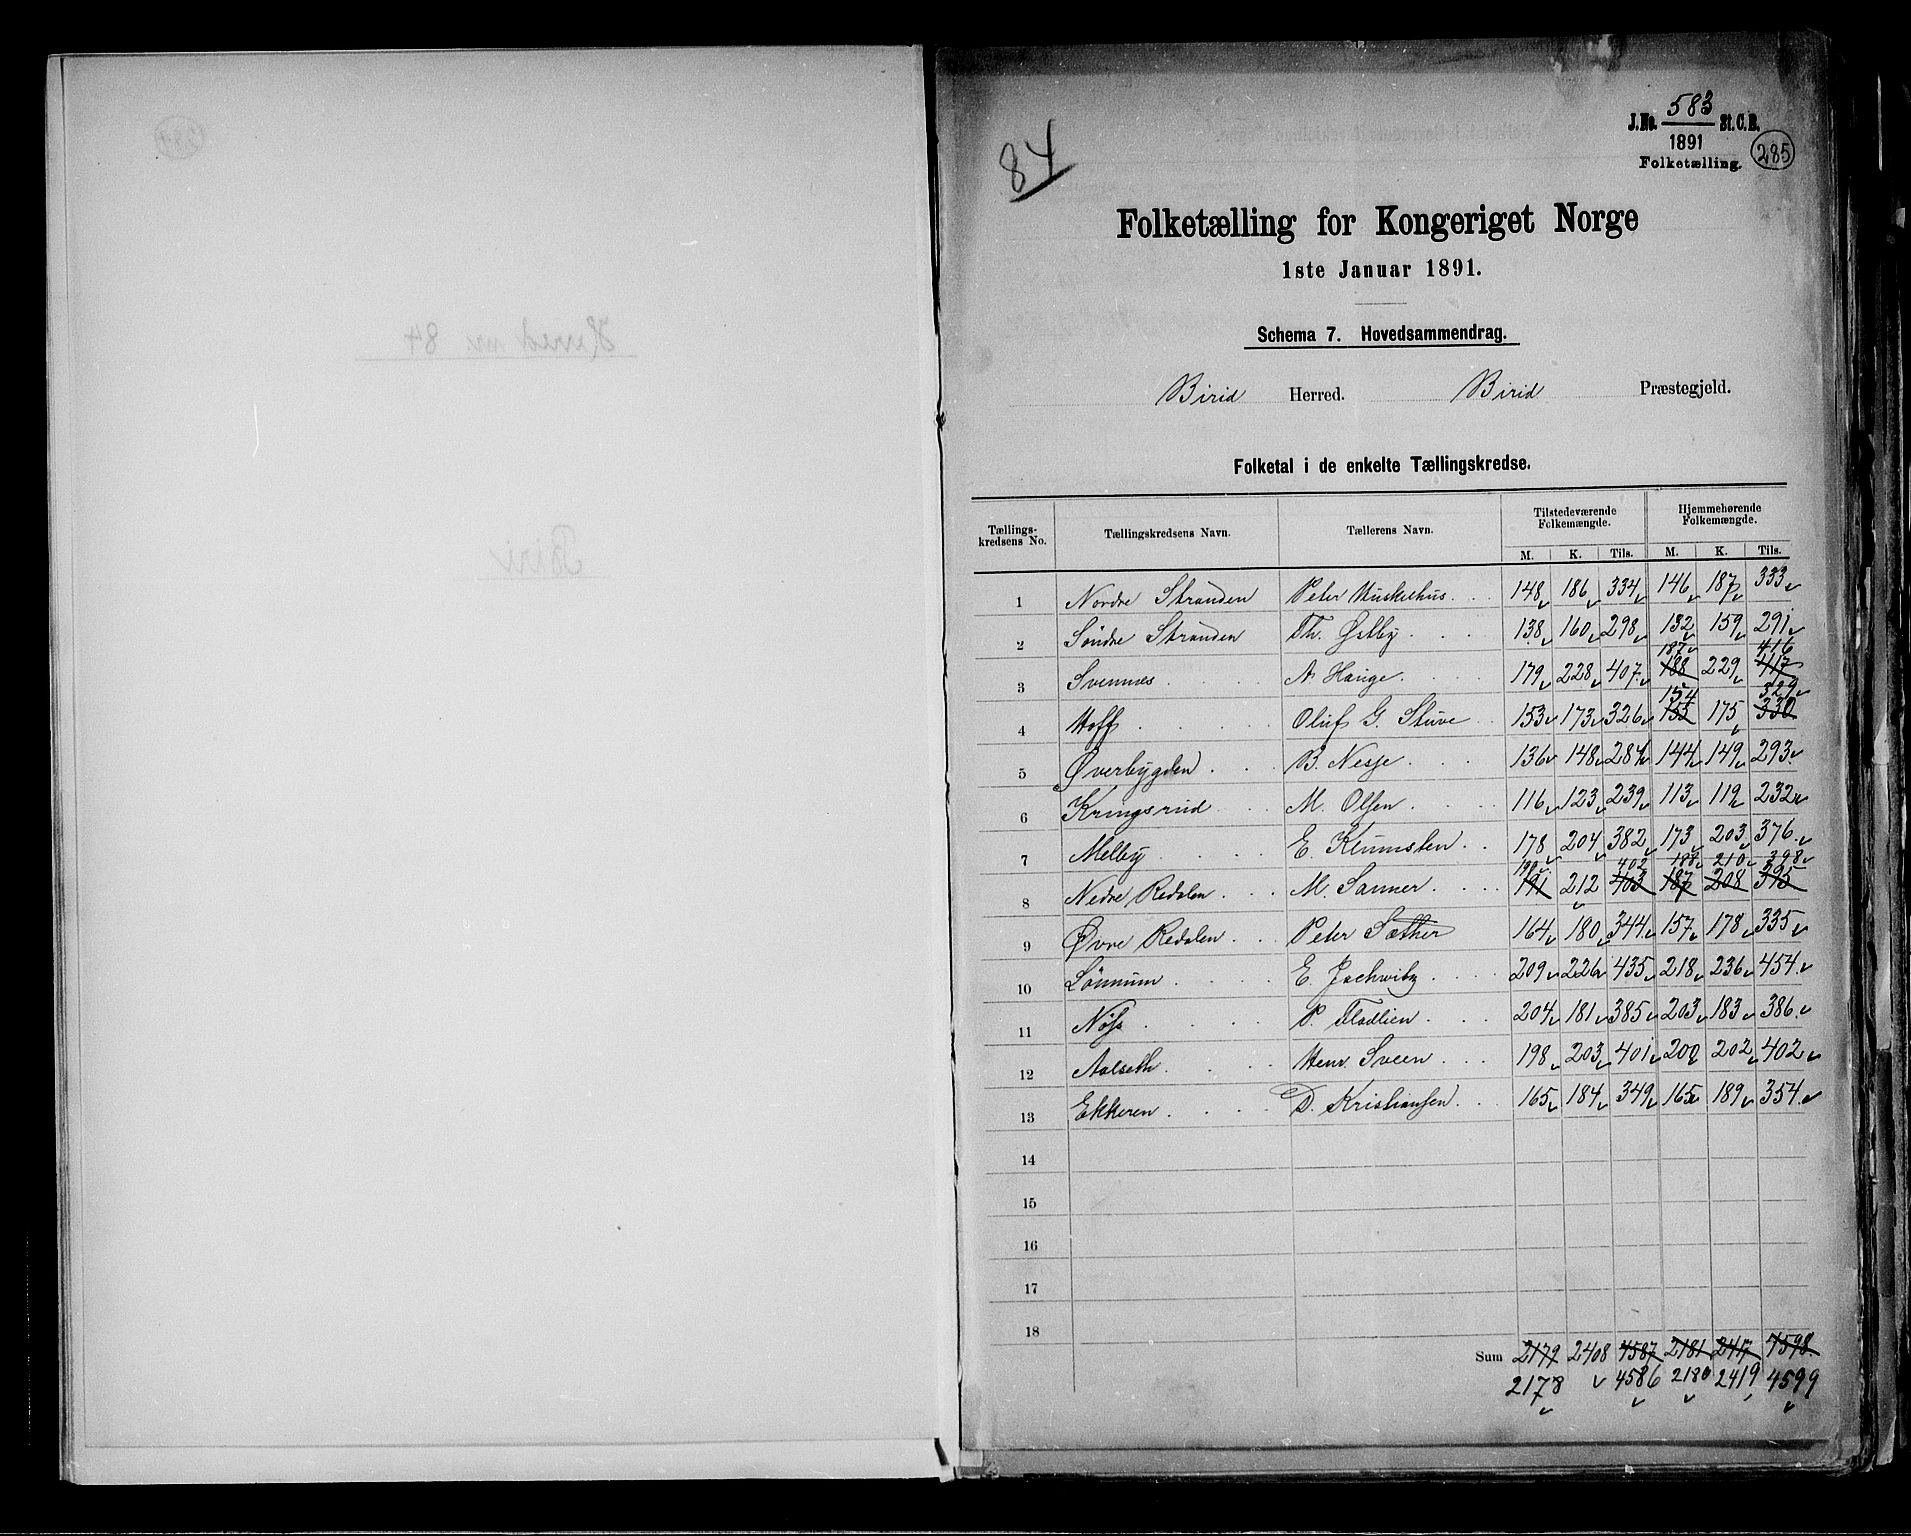 84
J.No. 583 St.C.B.
1891
Folketælling.
285
Folketælling for Kongeriget Norge
1ste Januar 1891.
Schema 7. Hovedsammendrag.
Birid Herred. Birid Præstegjeld.
Folketal i de enkelte Tællingskredse.
Tællings-kredsens No. Tællingskredsens Navn. Tællerens Navn. Tilstedeværende Folkemængde. Hjemmehørende Folkemængde.
M. K. Tils. M. K. Tils.
1 Nordre Stranden Peter 148 186 334 146 187 333
2 Søndre Stranden Th. Østby 138 160 298 132 159 291
187 416
3 Svennes A Hauge 179 228 407 188 229 417
154 329
4 Hoff Oluf G. Stuve 153 173 326 155 175 330
5 Øverbygden B. Nesje 136 148 284 144 149 293
6 Kringsrud M. Olsen 116 123 239 113 119 232
7 Melby E. Klumsten 178 204 382 173 203 376
190 402 188 210 398
8 Nedre Redalen M. Sanner 191 212 403 187 208 395
9 Øvre Redalen Peter Sæther 164 180 344 157 178 335
10 Lønnum E. 209 226 435 218 236 454
11 Nøss P. Fladlien 204 181 385 203 183 386
12 Aalseth Henr Sveen 198 203 401 200 202 402
13 Ekkeren D. Kristiansen 165 184 349 165 189 354
14
15
16
17
18
Sum 2179 2408 4587 2181 2417 4598
2178 4586 2180 2419 4599
Herred nr. 84
Biri